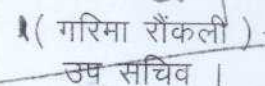 ( गरिमा रौंकली )
उप सचिव ।